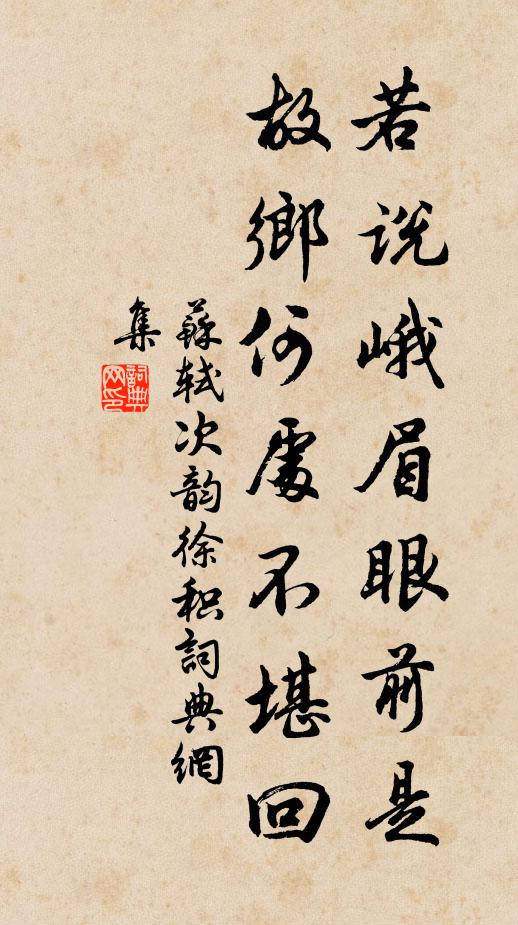 若說峨眉眼前是
故鄉何處不堪回
蘇軾次韵徐积詞典網
集
詞典
网印